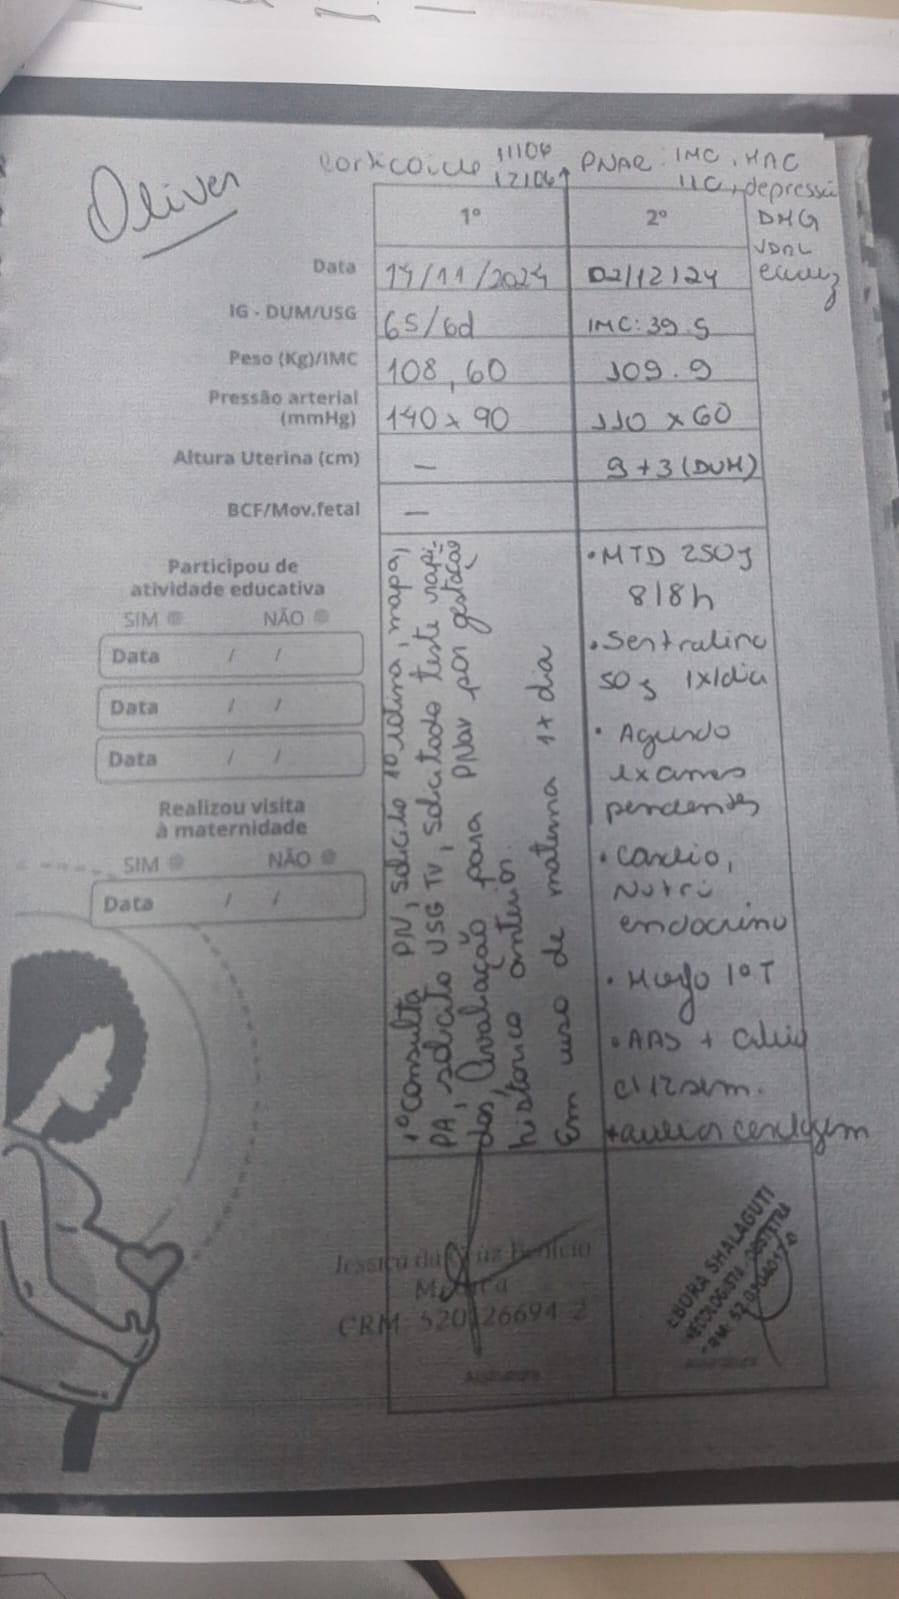 Oliver
corticoide 11/06
12/06
PNAR: IMC, HAC
IIC, depressã
DMG
VDRL
1º
2º
Data
14/11/2024
02/12/24
IG - DUM/USG
6S/6d
IMC: 39.5
Peso (Kg)/IMC
108,60
109.9
Pressão arterial
(mmHg)
140 x 90
110 x 60
Altura Uterina (cm)
—
9+3 (DUM)
BCF/Mov.fetal
—
Participou de
atividade educativa
SIM
NÃO
Data / /
Data / /
Data / /
Realizou visita
à maternidade
SIM
NÃO
Data / /
1ª consulta PN, solicito rotina, mapa,
PA, solicito USG TV, solicitado teste rápi-
dos, Avaliação para PNar por gestação
histórico anterior.
Em uso de materna 1x dia
• MTD 250g
8/8h
• Sertralina
50g 1x/dia
• Aguardo
exames
pendentes
• Cardio,
Nutri
endocrino
• Morfo 1ºT
• AAS + Cálcio
c/ 12sem.
cerclagem
Jessica da Cruz
Médica
CRM: 520126694-2
EBORA SHALAGUTI
OBSTETRA
Assinatura